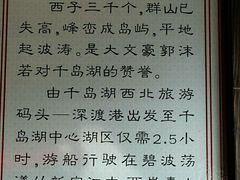 西子三千个，群山已
失高，峰峦成岛屿，平地
起波涛。是大文豪郭沫
若对千岛湖的赞誉。
由千岛湖西北旅游
码头—深渡港出发至千
岛湖中心湖区仅需2.5小
时，游船行驶在碧波荡